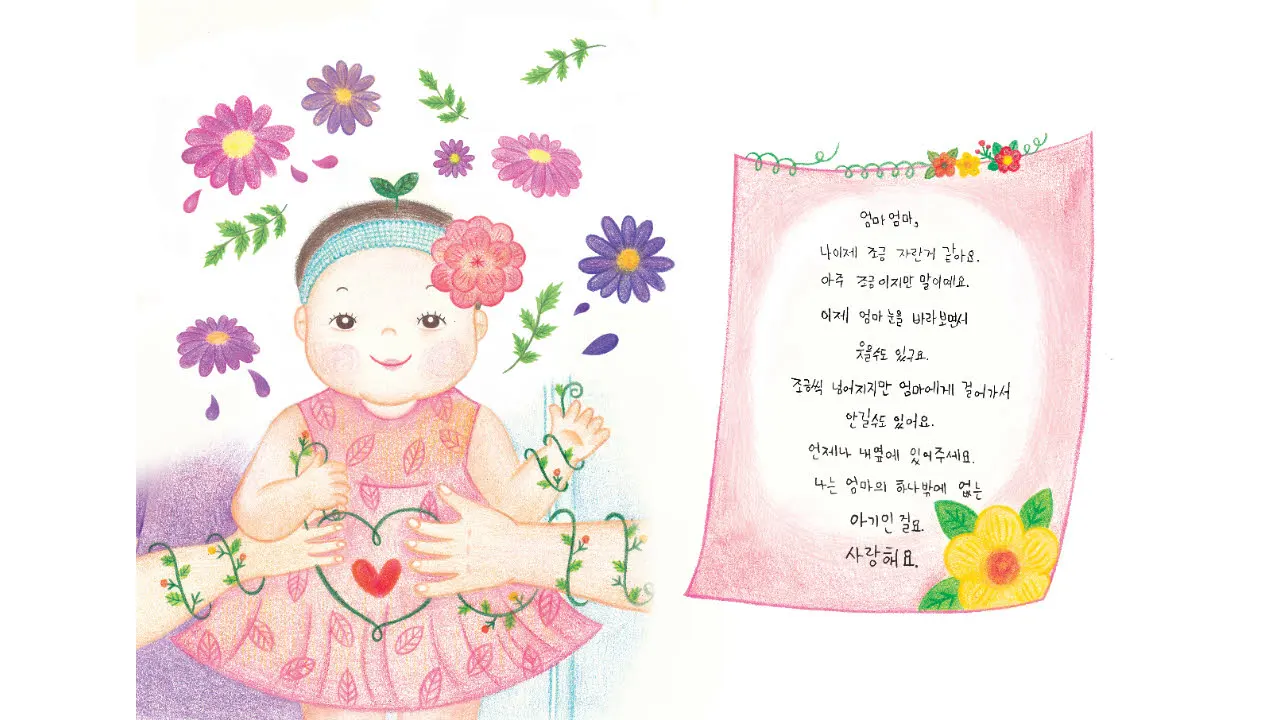 엄마 엄마,
나 이제 조금 자란거 같아요.
아주 조금이지만 말이에요.
이제 엄마 눈을 바라보면서
웃을수도 있구요.
조금씩 넘어지지만 엄마에게 걸어가서
안길수도 있어요.
언제나 내옆에 있어주세요.
나는 엄마의 하나밖에 없는
아기인 걸요.
사랑해요.